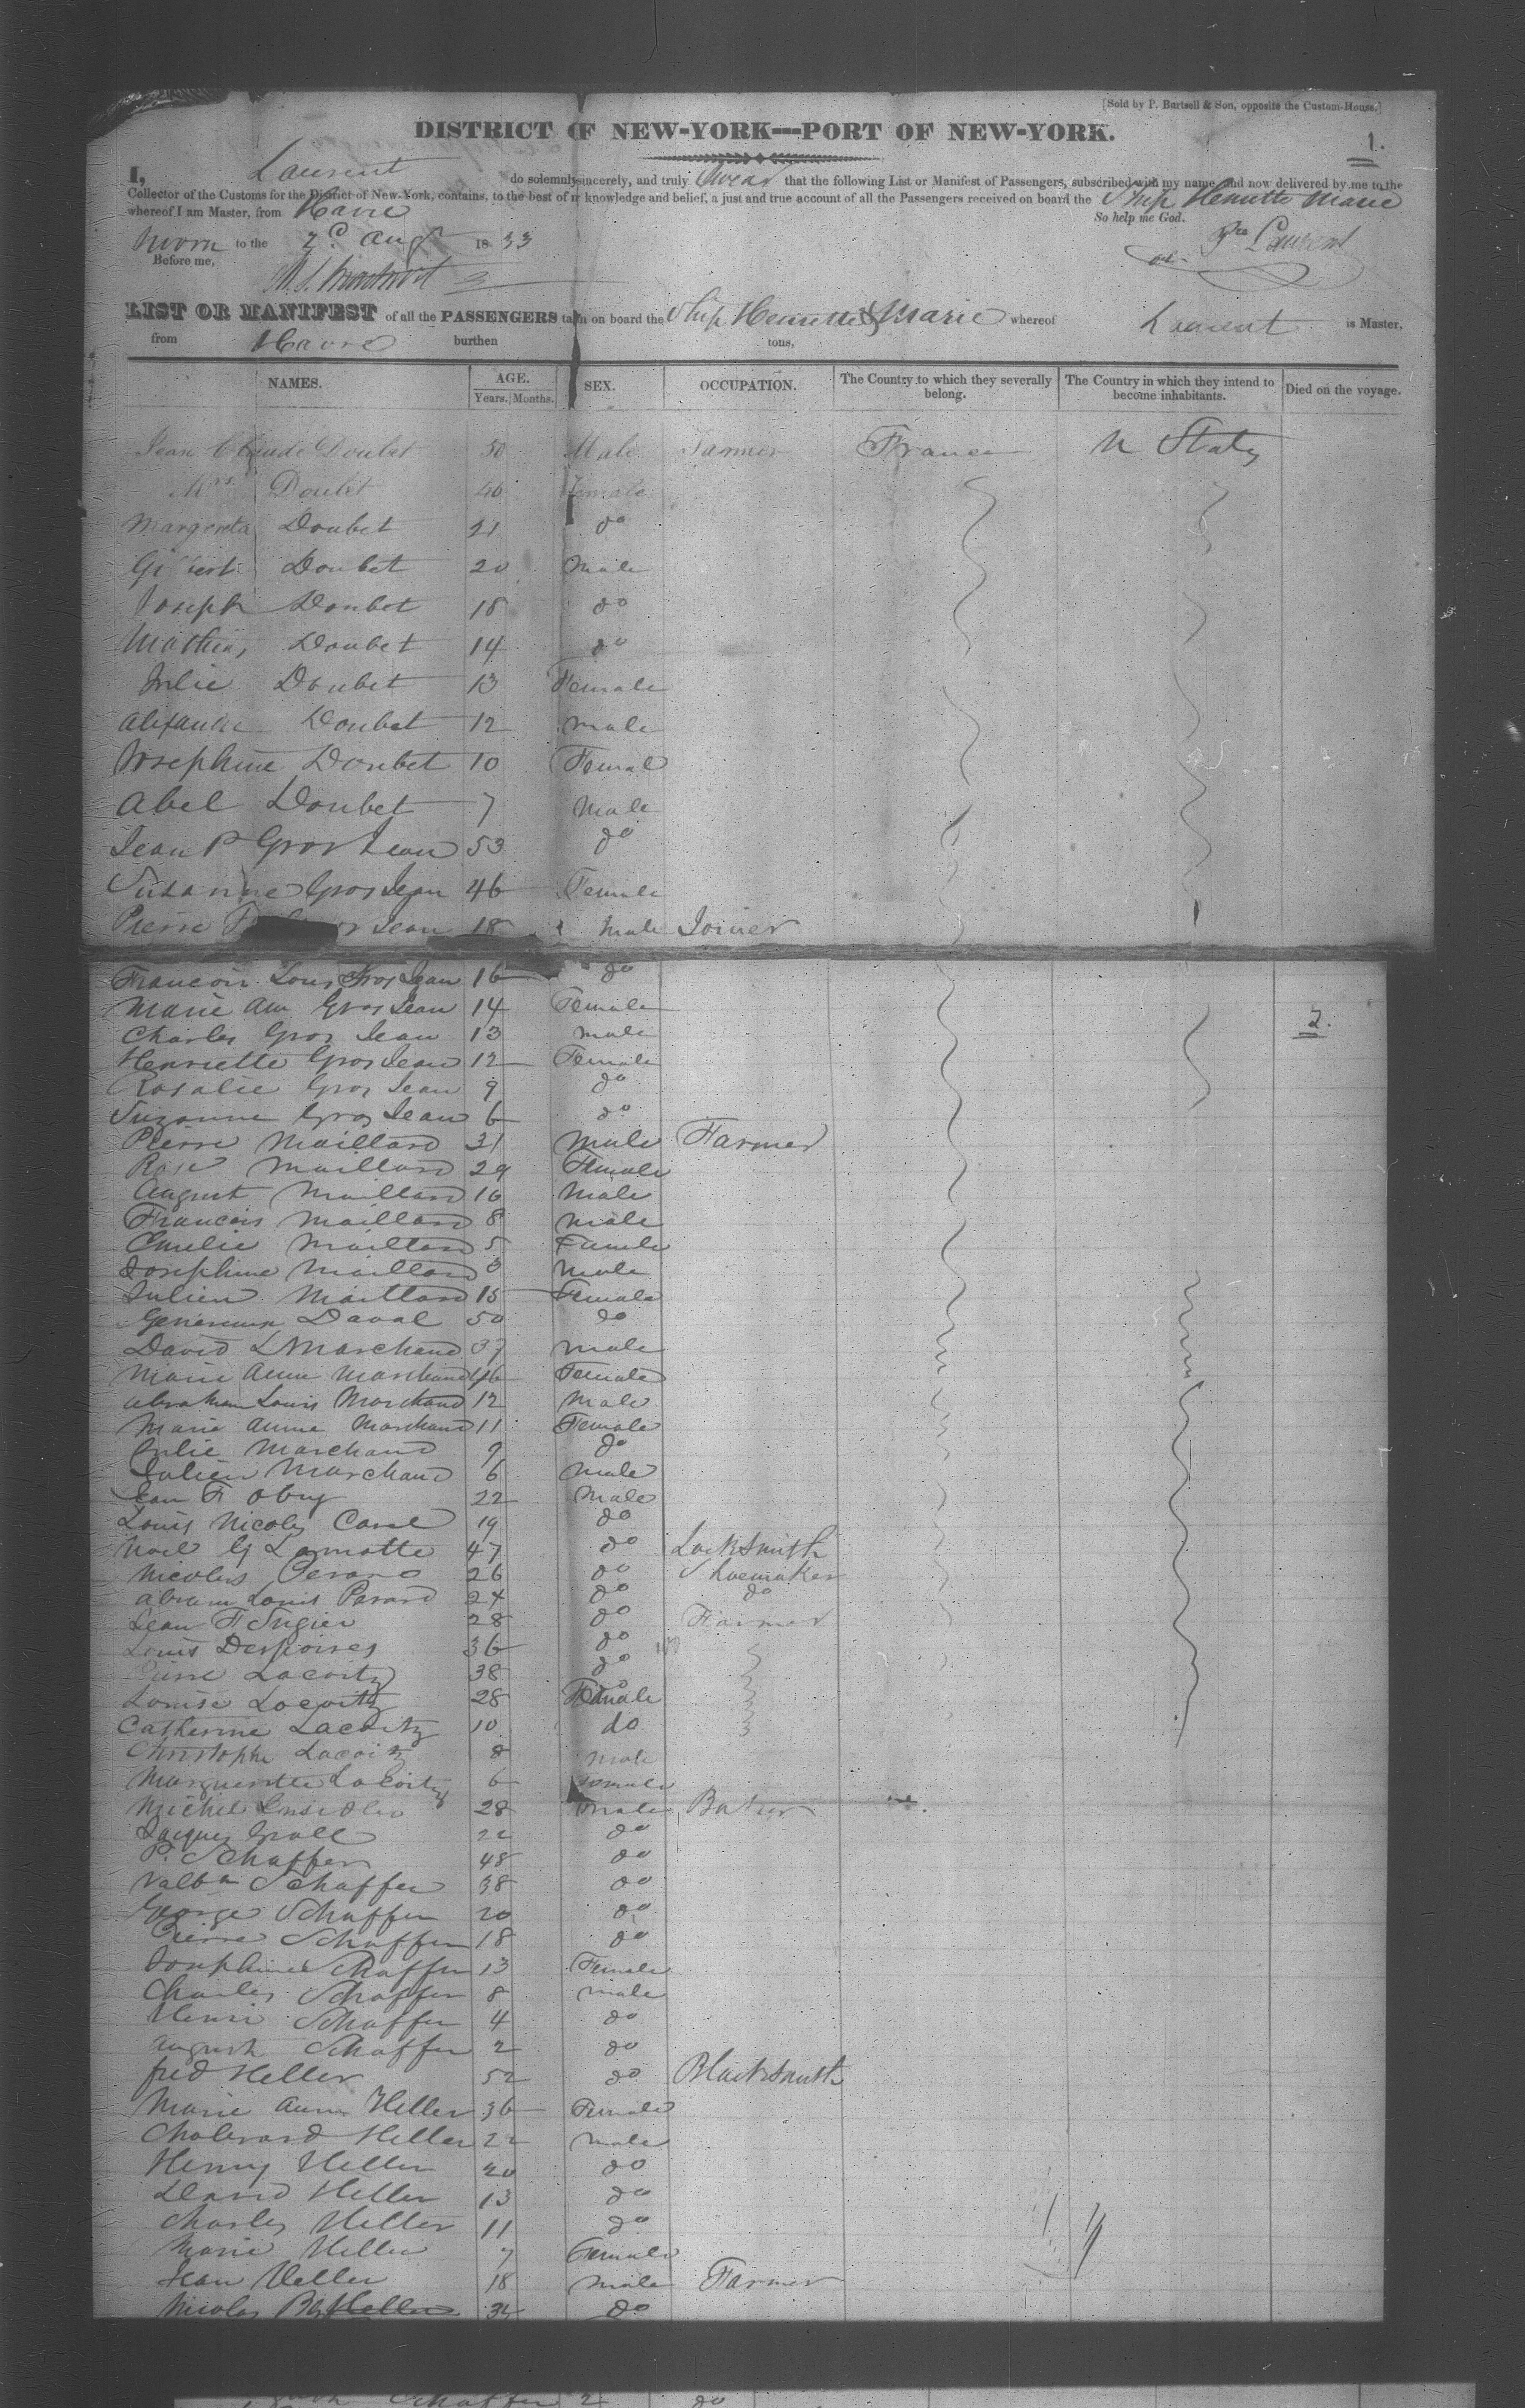 [Sold by P. Burtsell & Son, opposite the Custom-House.]
DISTRICT OF NEW-YORK---PORT OF NEW-YORK.
1.
I, Laurent do solemnly, sincerely, and truly Swear that the following List or Manifest of Passengers, subscribed with my name, and now delivered by me to the
Collector of the Customs for the District of New-York, contains, to the best of my knowledge and belief, a just and true account of all the Passengers received on board the Ship Henriette Marie
whereof I am Master, from Havre So help me God.
Sworn to the 2d Augt 1833 Laurent
Before me,
LIST OR MANIFEST of all the PASSENGERS taken on board the Ship Henriette & Marie whereof Laurent is Master,
from Havre burthen tons,
NAMES. AGE. Years. Months. SEX. OCCUPATION. The Country to which they severally belong. The Country in which they intend to become inhabitants. Died on the voyage.
Jean Claude Doubet 50 Male Farmer France U States
Mrs Doubet 46 Female
Margereta Doubet 21 do
Doubet 20 Male
Joseph Doubet 18 do
Mathias Doubet 14 do
Julie Doubet 13 Female
Alexandre Doubet 12 Male
Josephine Doubet 10 Femal
Abel Doubet 7 Male
Jean P Gros Jean 53 do
Susanne Gros Jean 46 Female
Pierre Jean 18 Male Joiner
Francois Louis Gros Jean 16 do
2.
Marie Ann Gros Jean 14 Female
Charles Gros Jean 13 male
Henriette Gros Jean 12 Female
Rosalie Gros Jean 9 do
Suzanne Gros Jean 6 do
Pierre Maillard 31 Male Farmer
Rose Maillard 29 Female
August Maillard 10 Male
Francois Maillard 8 Male
Emelie Maillard 5 Female
Josephine Maillard 3 Male
Julien Maillard 15 Female
Daval 50 do
David L Marchand 37 male
Marie Anne Marchand 46 Female
Abraham Louis Marchand 12 Male
Marie Anne Marchand 11 Female
Julie Marchand 9 do
Julien Marchand 6 Male
Jean F Obry 22 Male
Louis Nicolas 19 do
Noel G Lamotte 47 do Locksmith
Nicolas 26 do Shoemaker
Abram Louis Parard 24 do do
Jean F Sugier 28 do Farmer
Louis 36 do
Pierre Lacoitz 38 do
Louise Lacoitz 28 Female
Catherine Lacoitz 10 do
Christophe Lacoitz 8 Male
Marguerite Lacoitz 6 Female
Michel 28 Male Baker
Jacques 22 do
P. Schaffer 48 do
Schaffer 38 do
George Schaffer 20 do
Pierre Schaffer 18 do
Josephine Schaffer 13 Female
Charles Schaffer 8 male
Henri Schaffer 4 do
August Schaffer 2 do
fred Heller 52 do Blacksmith
Marie Anne Heller 36 Female
Heller 22 Male
Henry Heller 20 do
David Heller 13 do
Charles Heller 11 do
Marie Heller 7 Female
Jean Heller 18 Male Farmer
Nicolas do
Schaffer 2 do